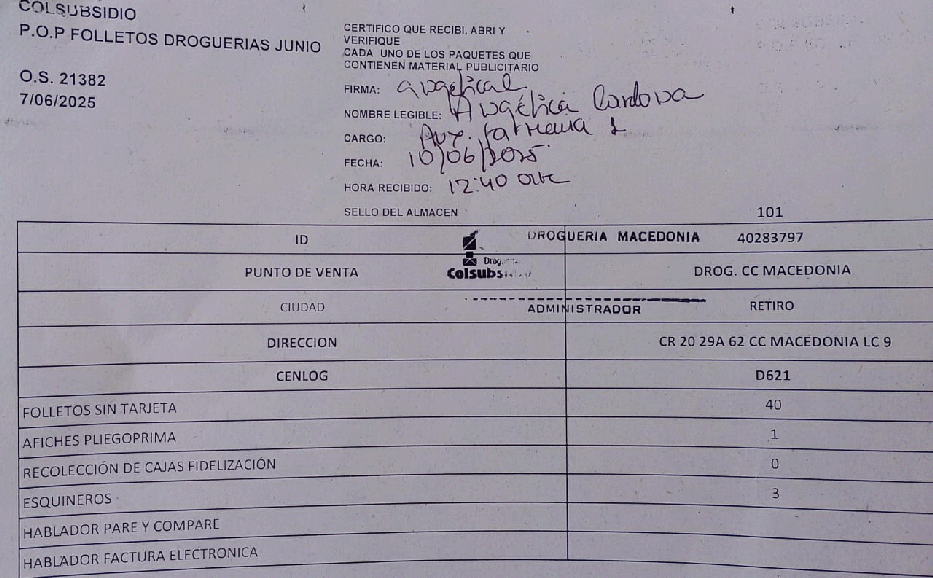 COLSUBSIDIO
P.O.P FOLLETOS DROGUERIAS JUNIO
O.S. 21382
7/06/2025
CERTIFICO QUE RECIBI, ABRI Y
VERIFIQUE
CADA UNO DE LOS PAQUETES QUE
CONTIENEN MATERIAL PUBLICITARIO
FIRMA: angelical
NOMBRE LEGIBLE: Angélica Cordova
CARGO: Aux. farmacia 1
FECHA: 10/06/2025
HORA RECIBIDO: 12:40
SELLO DEL ALMACEN
101
ID DROGUERIA MACEDONIA 40283797
Colsubsidio
PUNTO DE VENTA DROG. CC MACEDONIA
CIUDAD ADMINISTRADOR RETIRO
DIRECCION CR 20 29A 62 CC MACEDONIA LC 9
CENLOG D621
FOLLETOS SIN TARJETA 40
AFICHES PLIEGOPRIMA 1
RECOLECCIÓN DE CAJAS FIDELIZACIÓN 0
ESQUINEROS 3
HABLADOR PARE Y COMPARE
HABLADOR FACTURA ELECTRONICA